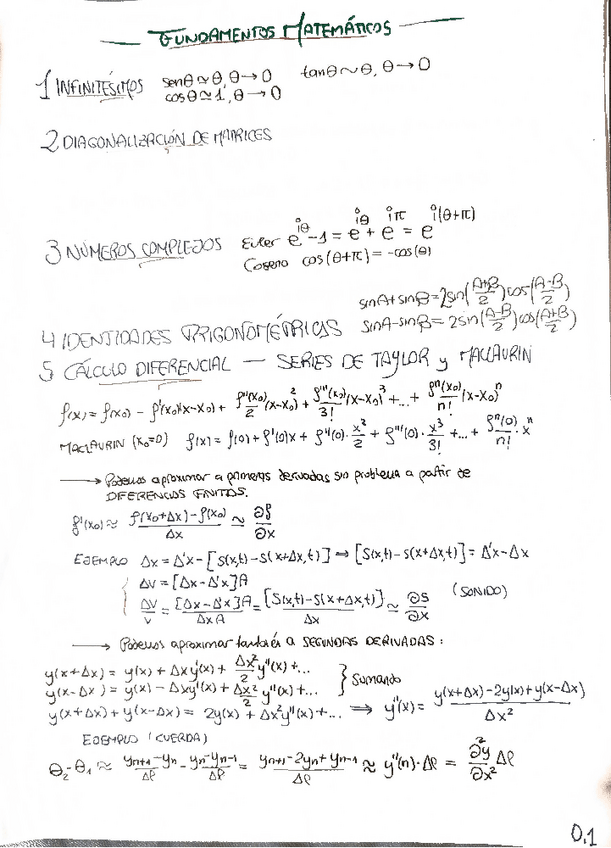 FUNDAMENTOS MATEMÁTICOS
1 INFINITÉSIMOS senθ≃θ, θ→0 tanθ∼θ, θ→0
cosθ≃1, θ→0
2 DIAGONALIZACIÓN DE MATRICES
3 NÚMEROS COMPLEJOS Euler e^{iθ}·-1 = e^{iθ} + e^{iπ} = e^{i(θ+π)}
Coseno cos(θ+π) = -cos(θ)
sinA+sinB = 2sin((A+B)/2)cos((A-B)/2)
4 IDENTIDADES TRIGONOMÉTRICAS sinA-sinB = 2sin((A-B)/2)cos((A+B)/2)
5 CÁLCULO DIFERENCIAL — SERIES DE TAYLOR y MACLAURIN
f(x) = f(x0) - f'(x0)(x-x0) + f''(x0)/2 (x-x0)^2 + f'''(x0)/3! (x-x0)^3 + ... + f^n(x0)/n! (x-x0)^n
MACLAURIN (x0=0) f(x) = f(0) + f'(0)x + f''(0)·x^2/2 + f'''(0)·x^3/3! + ... + f^n(0)/n! · x^n
→ Podemos aproximar a primeras derivadas sin problema a partir de
DIFERENCIAS FINITAS.
f'(x0) ≈ (f(x0+Δx) - f(x0))/Δx ≃ ∂f/∂x
EJEMPLO Δx = Δ'x - [S(x,t) - S(x+Δx,t)] ⟹ [S(x,t) - S(x+Δx,t)] = Δ'x - Δx
ΔV = [Δx - Δ'x]A
ΔV/V = [Δx - Δ'x]A/ΔxA = [S(x,t) - S(x+Δx,t)]/Δx ≃ ∂S/∂x (SONIDO)
→ Podemos aproximar también a SEGUNDAS DERIVADAS:
y(x+Δx) = y(x) + Δxy'(x) + Δx^2/2 y''(x) + ...
y(x-Δx) = y(x) - Δxy'(x) + Δx^2/2 y''(x) + ... } Sumando
y(x+Δx) + y(x-Δx) = 2y(x) + Δx^2 y''(x) + ... ⟹ y''(x) = (y(x+Δx) - 2y(x) + y(x-Δx))/Δx^2
EJEMPLO (CUERDA)
θ2-θ1 ≈ (yn+1 - yn)/Δl - (yn - yn-1)/Δl = (yn+1 - 2yn + yn-1)/Δl ≈ y''(n)·Δl = ∂^2y/∂x^2 Δl
0.1